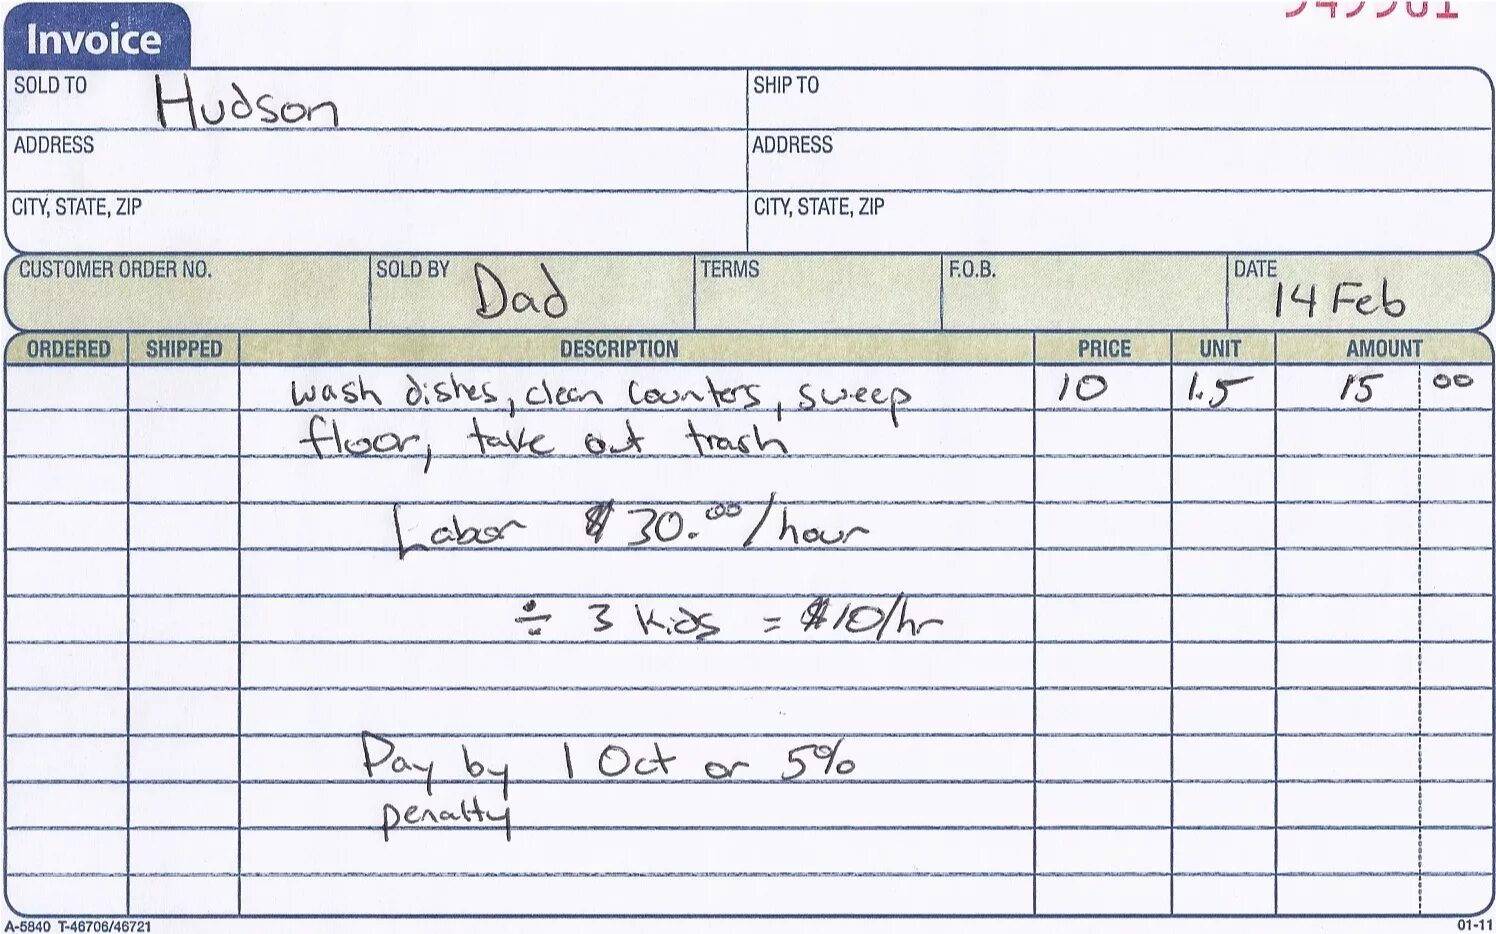 Invoice
SOLD TO Hudson SHIP TO
ADDRESS ADDRESS
CITY, STATE, ZIP CITY, STATE, ZIP
CUSTOMER ORDER NO. SOLD BY Dad TERMS F.O.B. DATE 14 Feb
ORDERED SHIPPED DESCRIPTION PRICE UNIT AMOUNT
wash dishes, clean counters, sweep 10 1.5 15 00
floor, take out trash
Labor $30.00/hour
÷ 3 kids = $10/hr
Pay by 1 Oct or 5%
penalty
A-5840 T-46706/46721 01-11